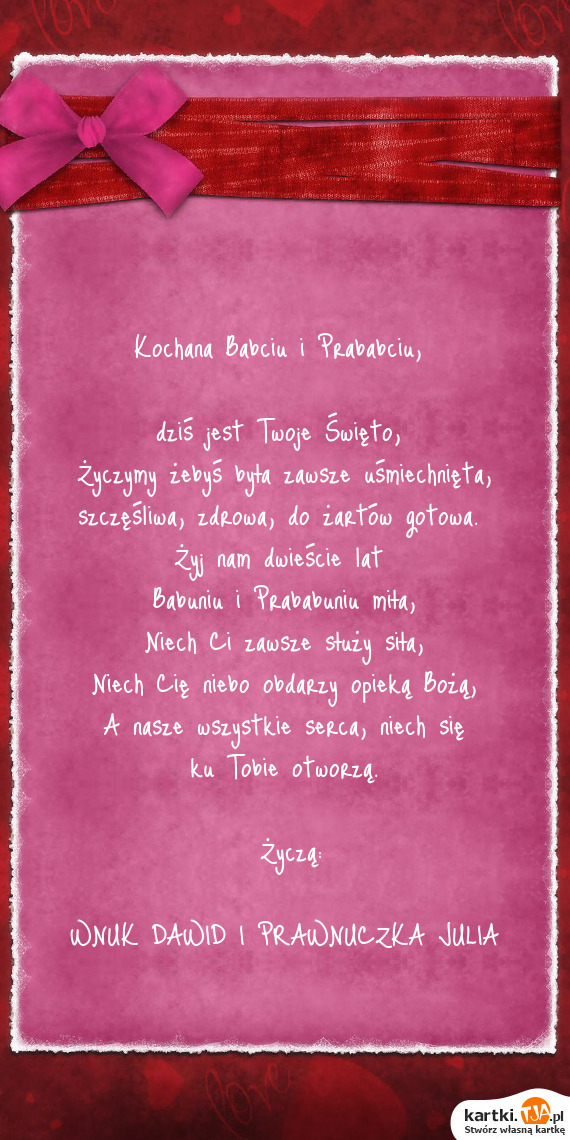 Kochana Babciu i Prababciu,
dziś jest Twoje Święto,
Życzymy żebyś była zawsze uśmiechnięta,
szczęśliwa, zdrowa, do żartów gotowa.
Żyj nam dwieście lat
Babuniu i Prababuniu miła,
Niech Ci zawsze służy siła,
Niech Cię niebo obdarzy opieką Bożą,
A nasze wszystkie serca, niech się
ku Tobie otworzą.
Życzą:
WNUK DAWID I PRAWNUCZKA JULIA
love
kartki.TJA.pl
Stwórz własną kartkę